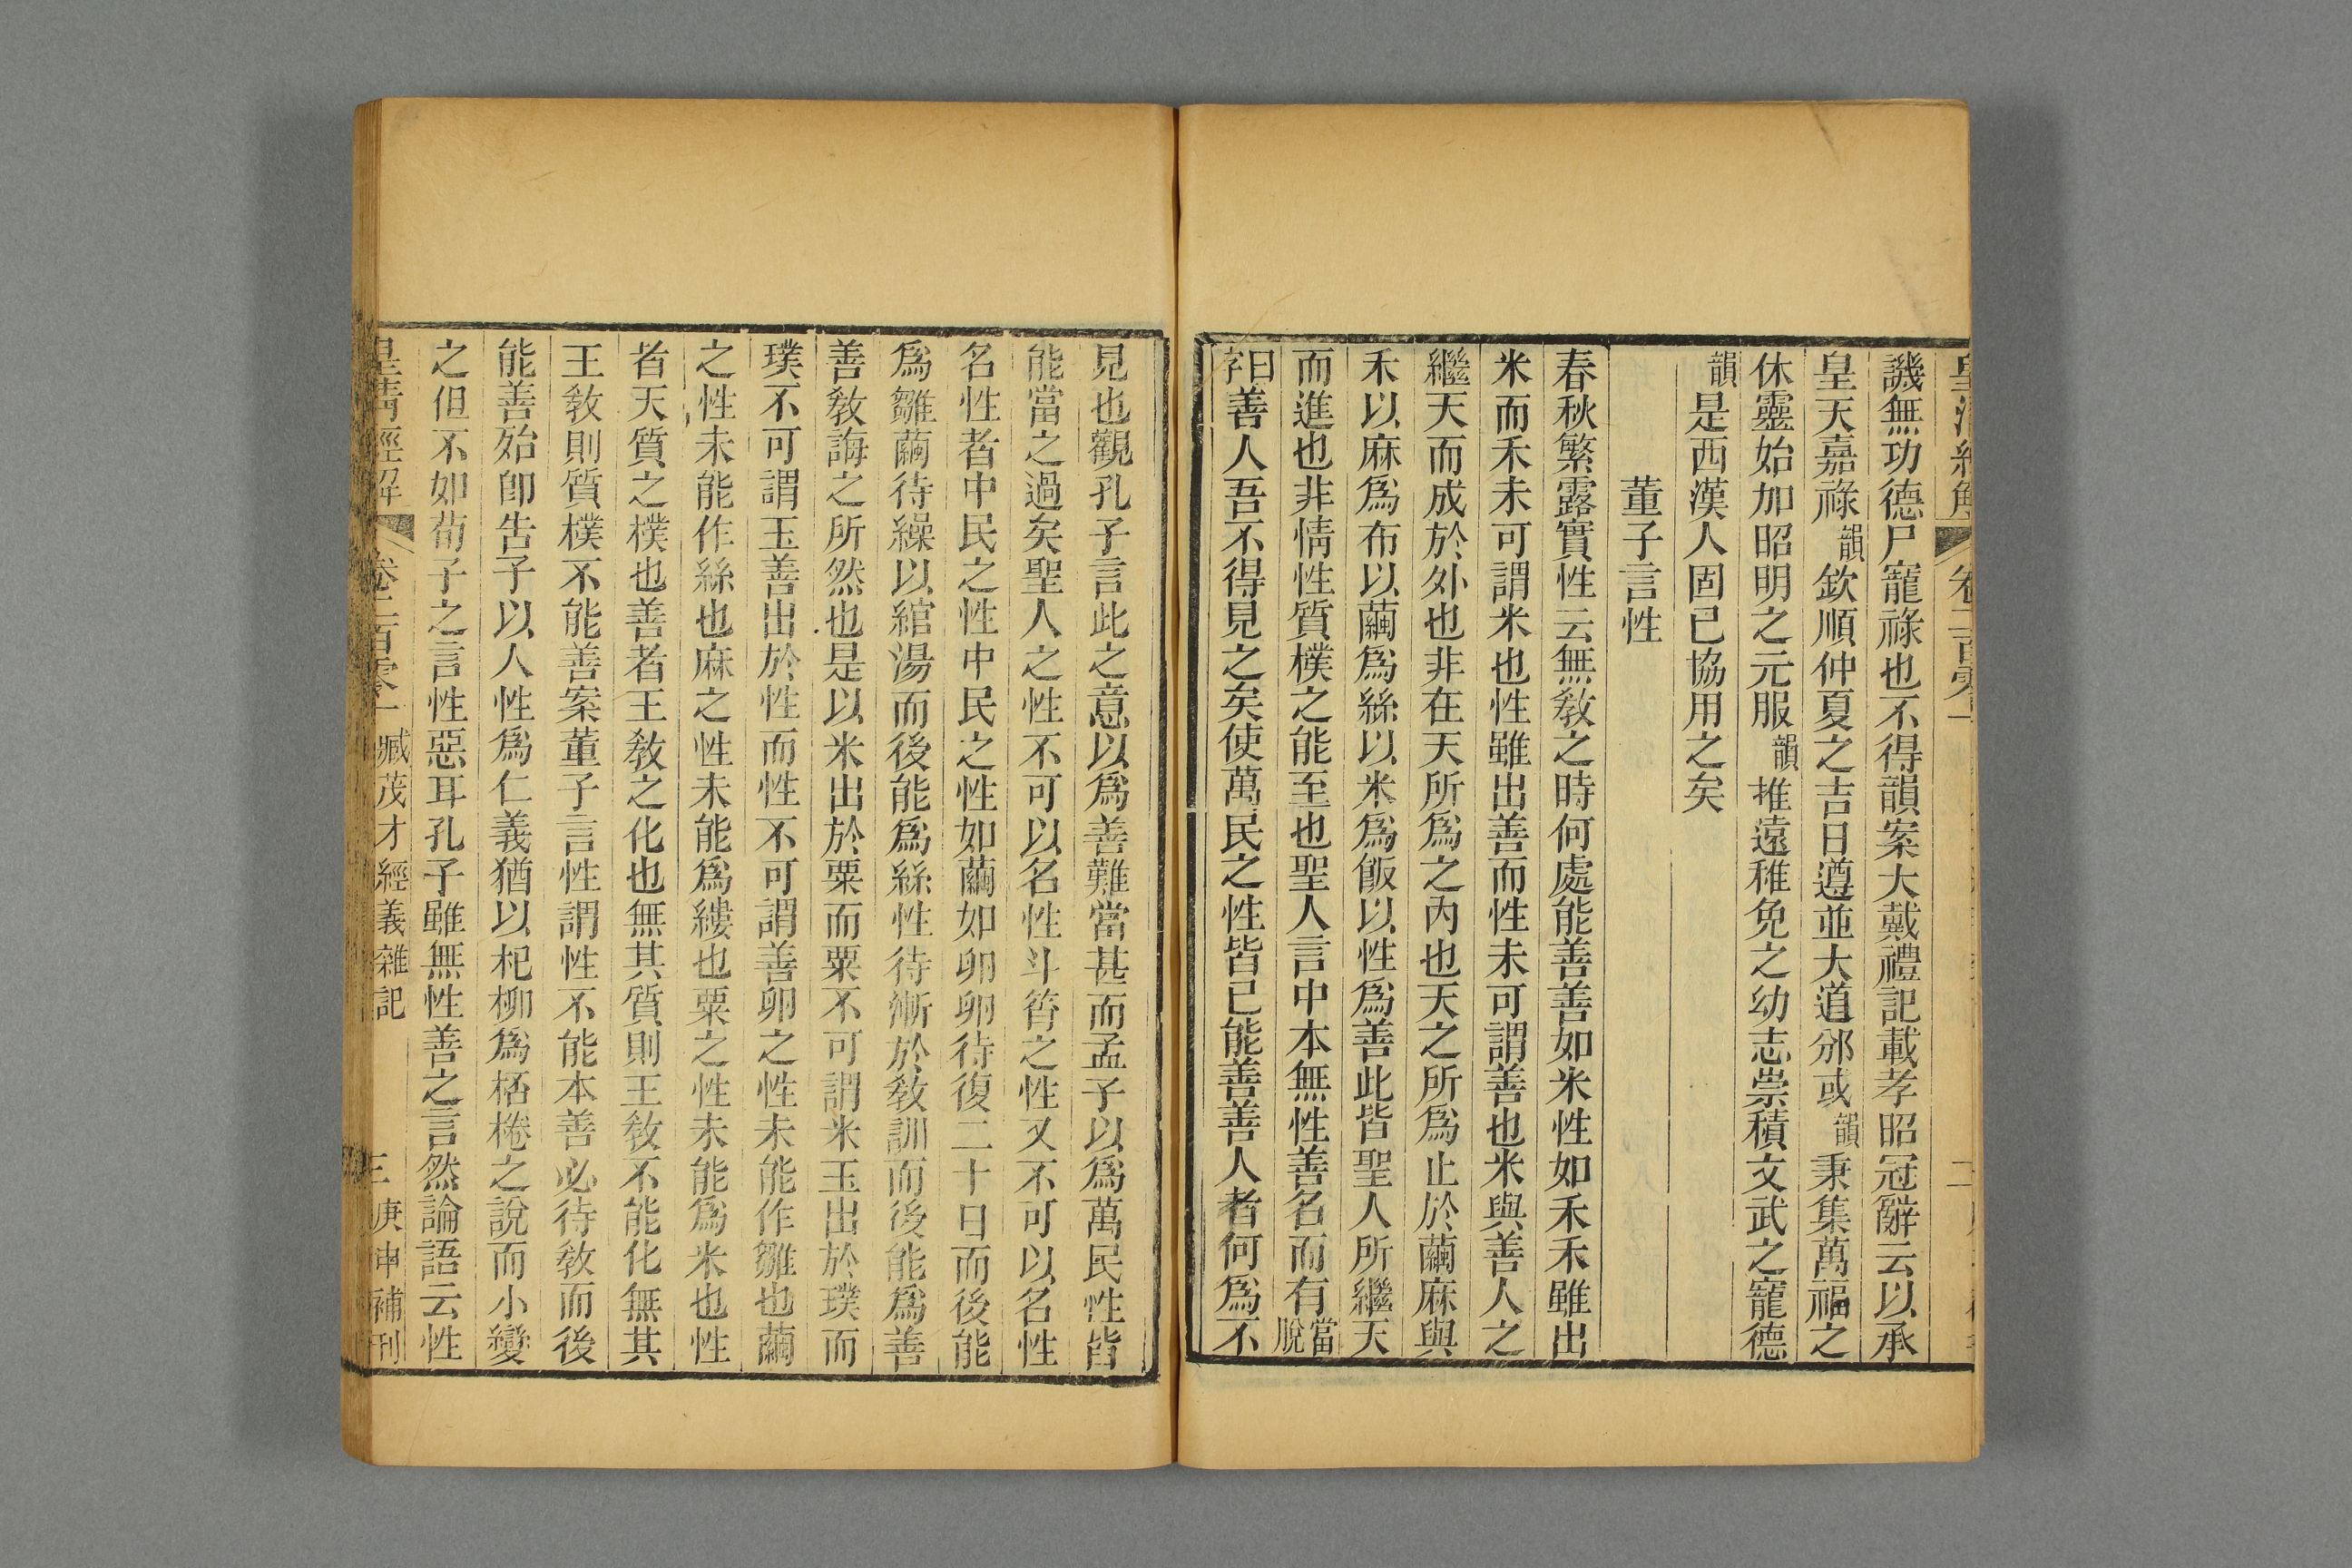 皇清經解 卷二百零一 二
譏無功德尸寵祿也不得韻案大戴禮記載孝昭冠辭云以承
皇天嘉祿韻欽順仲夏之吉日遵並大道邠或韻秉集萬福之
休靈始加昭明之元服韻推遠稚免之幼志崇積文武之寵德
韻是西漢人固已協用之矣
董子言性
春秋繁露實性云無敎之時何處能善善如米性如禾禾雖出
米而禾未可謂米也性雖出善而性未可謂善也米與善人之
繼天而成於外也非在天所爲之內也天之所爲止於繭麻與
禾以麻爲布以繭爲絲以米爲飯以性爲善此皆聖人所繼天
而進也非情性質樸之能至也聖人言中本無性善名而有當脫
曰字善人吾不得見之矣使萬民之性皆已能善善人者何爲不
見也觀孔子言此之意以爲善難當甚而孟子以爲萬民性皆
能當之過矣聖人之性不可以名性斗筲之性又不可以名性
名性者中民之性中民之性如繭如卵卵待復二十日而後能
爲雛繭待繰以綰湯而後能爲絲性待漸於敎訓而後能爲善
善敎誨之所然也是以米出於粟而粟不可謂米玉出於璞而
璞不可謂玉善出於性而性不可謂善卵之性未能作雛也繭
之性未能作絲也麻之性未能爲縷也粟之性未能爲米也性
者天質之樸也善者王敎之化也無其質則王敎不能化無其
王敎則質樸不能善案董子言性謂性不能本善必待敎而後
能善殆卽告子以人性爲仁義猶以杞柳爲桮棬之說而小變
之但不如荀子之言性惡耳孔子雖無性善之言然論語云性
皇清經解 卷二百零一 臧茂才經義雜記 三 庚申補刊